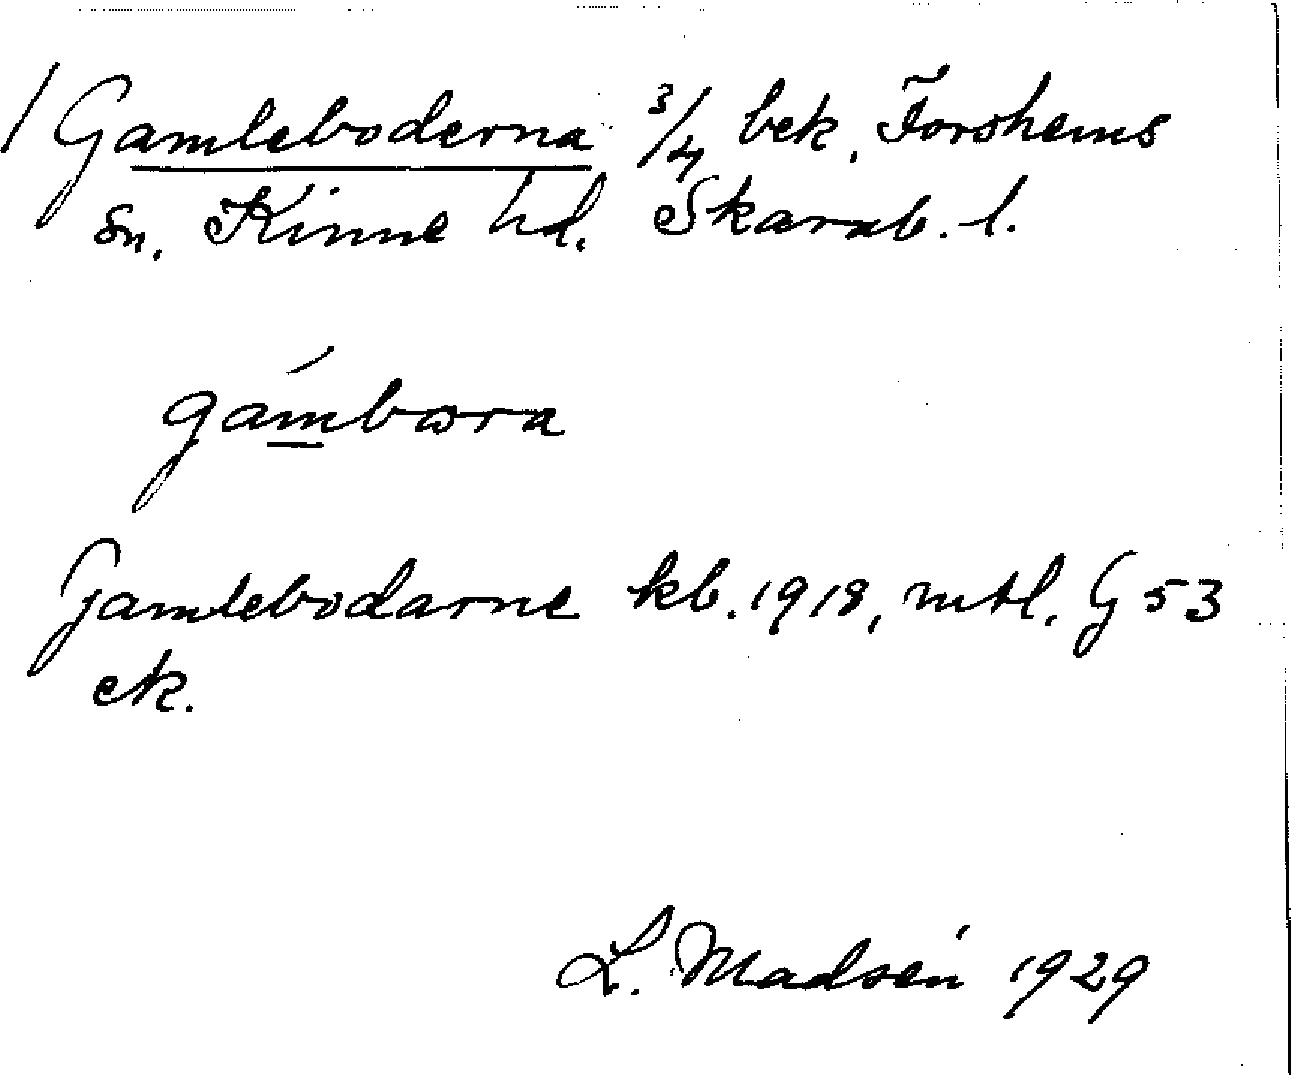 / Gamleboderna 3/4 bek, Forshems
sn. Kinne hd. Skarab. l.
gámbora
Gamlebodarne kb. 1918, mtl. G 53
ek.
L. Madsén 1929